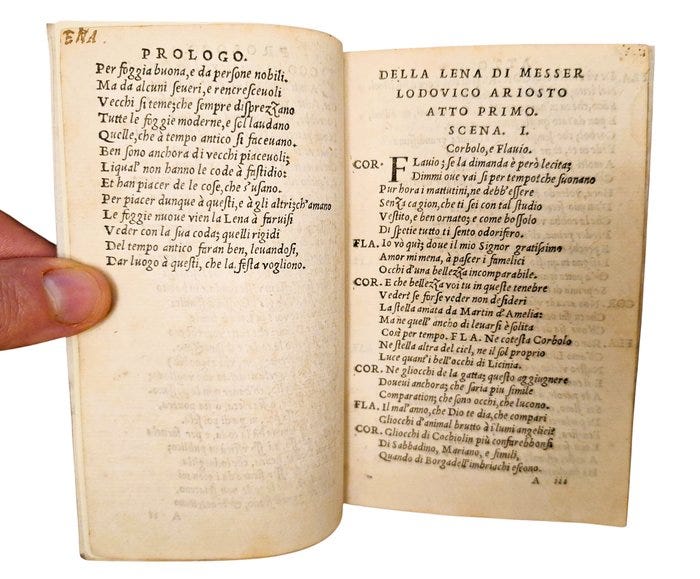 ENA.
PROLOGO.
Per foggia buona, e da persone nobili.
Ma da alcuni seueri, e rencresceuoli
Vecchi si teme; che sempre disprezzano
Tutte le foggie moderne, e sol laudano
Quelle, che à tempo antico si faceuano.
Ben sono anchora di vecchi piaceuoli;
Liquai non hanno le code à fastidio:
Et han piacer de le cose, che s'usano.
Per piacer dunque à questi, e à gli altri; ch'amano
Le foggie nuoue vien la Lena à faruisi
Veder con la sua coda; quelli rigidi
Del tempo antico faran ben, leuandosi,
Dar luogo à questi, che la festa vogliono.
DELLA LENA DI MESSER
LODOVICO ARIOSTO
ATTO PRIMO.
SCENA. I.
Corbolo, e Flauio.
COR. FLauio; se la dimanda è però lecita;
Dimmi oue vai si per tempo? che suonano
Pur hora i mattutini, ne debb'essere
Senza cagion, che ti sei con tal studio
Vestito, e ben ornato; e come bossolo
Di spetie tutto ti sento odorifero.
FLA. Io vò quì; doue il mio Signor gratissimo
Amor mi mena, à pascer i famelici
Occhi d'una bellezza incomparabile.
COR. E che bellezza voi tu in queste tenebre
Veder? se forse veder non desideri
La stella amata da Martin d'Amelia:
Ma ne quell' ancho di leuarsi è solita
Così per tempo. FLA. Ne cotesta Corbolo
Ne stella altra del ciel, ne il sol proprio
Luce quant'i bell'occhi di Licinia.
COR. Ne gliocchi de la gatta; questo aggiugnere
Doueui anchora; che saria piu simile
Comparation; che sono occhi, che lucono.
FLA. Il mal'anno, che Dio te dia, che compari
Gliocchi d'animal brutto à i lumi angelici?
COR. Gliocchi di Cochiolin più confarebbonsi
Di Sabbadino, Mariano, e simili,
Quando di Borgadell'imbriachi escono.
A iii